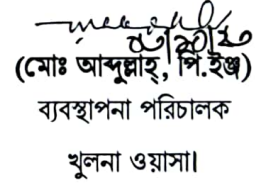 (মোঃ আব্দুল্লাহ্, পি.ইঞ্জ)
ব্যবস্থাপনা পরিচালক
খুলনা ওয়াসা।